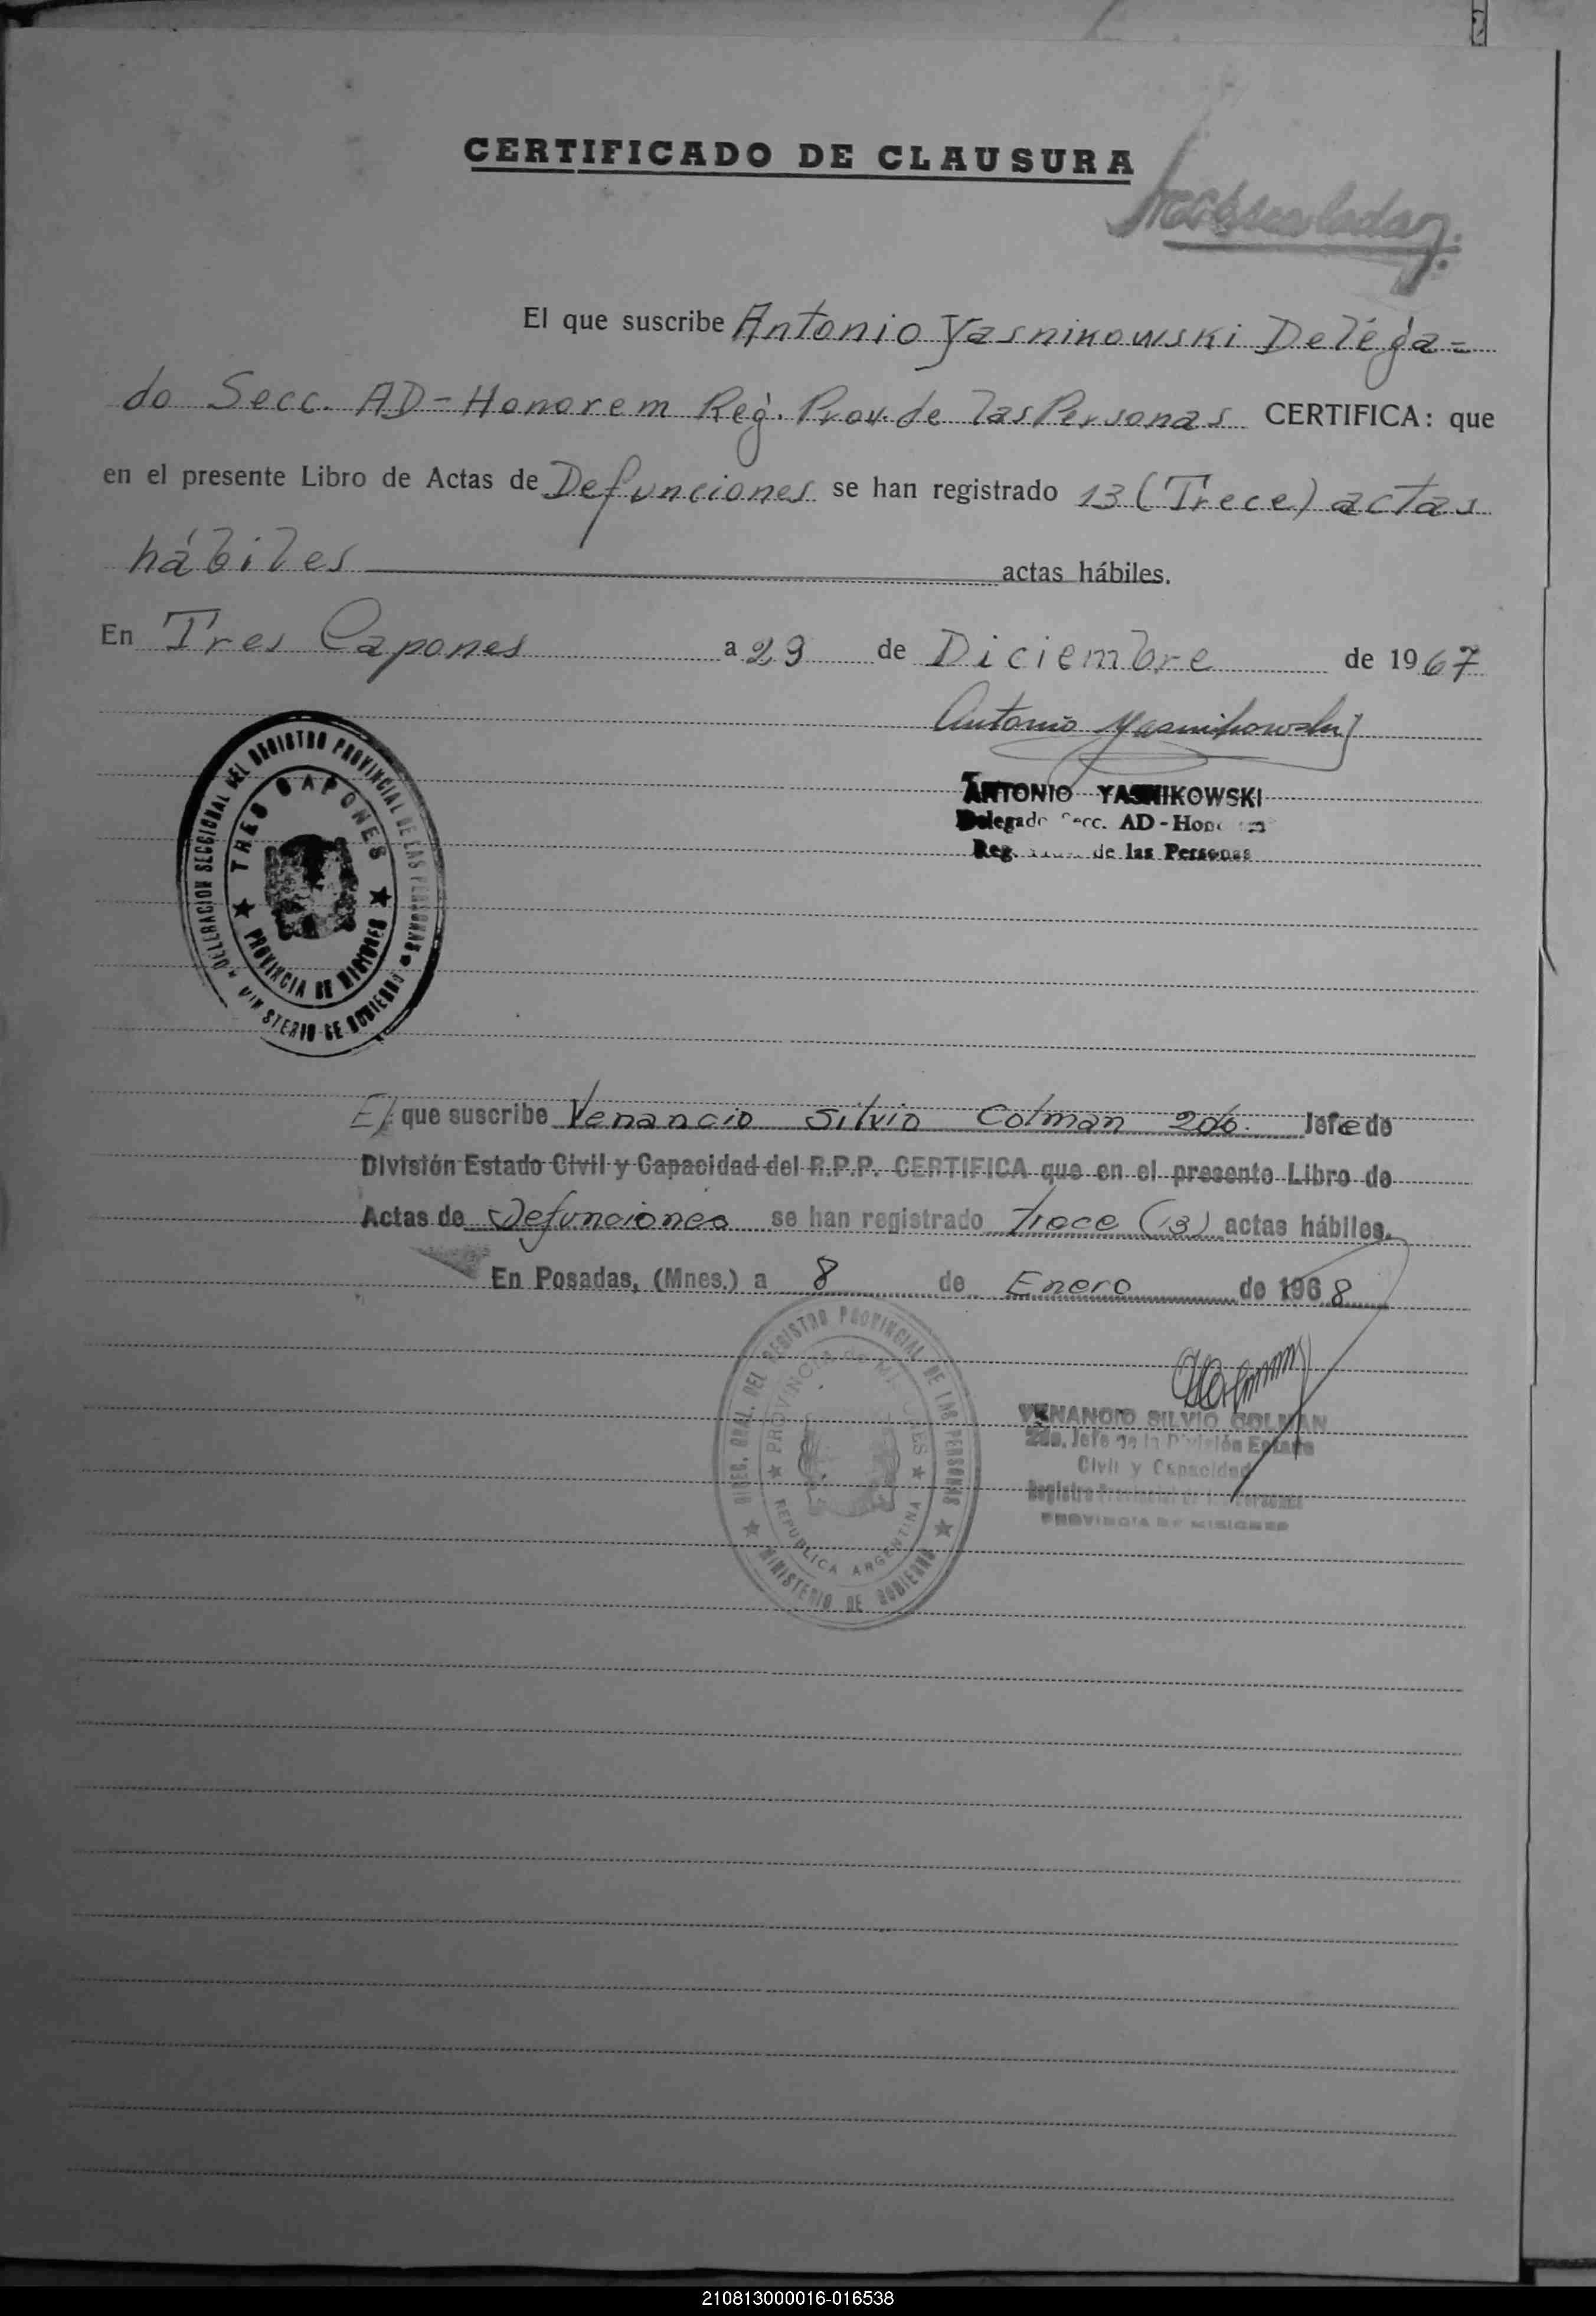 CERTIFICADO DE CLAUSURA
El que suscribe Antonio Yasnikowski Delega=
do Secc. AD-Honorem Reg. Prov. de las Personas CERTIFICA: que
en el presente Libro de Actas de Defunciones se han registrado 13 (Trece) actas
hábiles actas hábiles.
En Tres Capones a 29 de Diciembre de 1967
Antonio Yasnikowski
ANTONIO YASNIKOWSKI
Delegado Secc. AD-Honorem
Reg. de las Personas
DELEGACION SECCIONAL DEL REGISTRO PROVINCIAL DE LAS PERSONAS
MINISTERIO DE GOBIERNO
TRES CAPONES
PROVINCIA DE MISIONES
El que suscribe Venancio Silvio Colman 2do. Jefe de
División Estado Civil y Capacidad del R.P.P. CERTIFICA que en el presente Libro de
Actas de Defunciones se han registrado trece (13) actas hábiles.
En Posadas, (Mnes.) a 8 de Enero de 1968
DIREC. GRAL. DEL REGISTRO PROVINCIAL DE LAS PERSONAS
MINISTERIO DE GOBIERNO
PROVINCIA de MISIONES
REPUBLICA ARGENTINA
VENANCIO SILVIO COLMAN
2do. Jefe de la División Estado
Civil y Capacidad
Registro Provincial de las Personas
PROVINCIA DE MISIONES
210813000016-016538